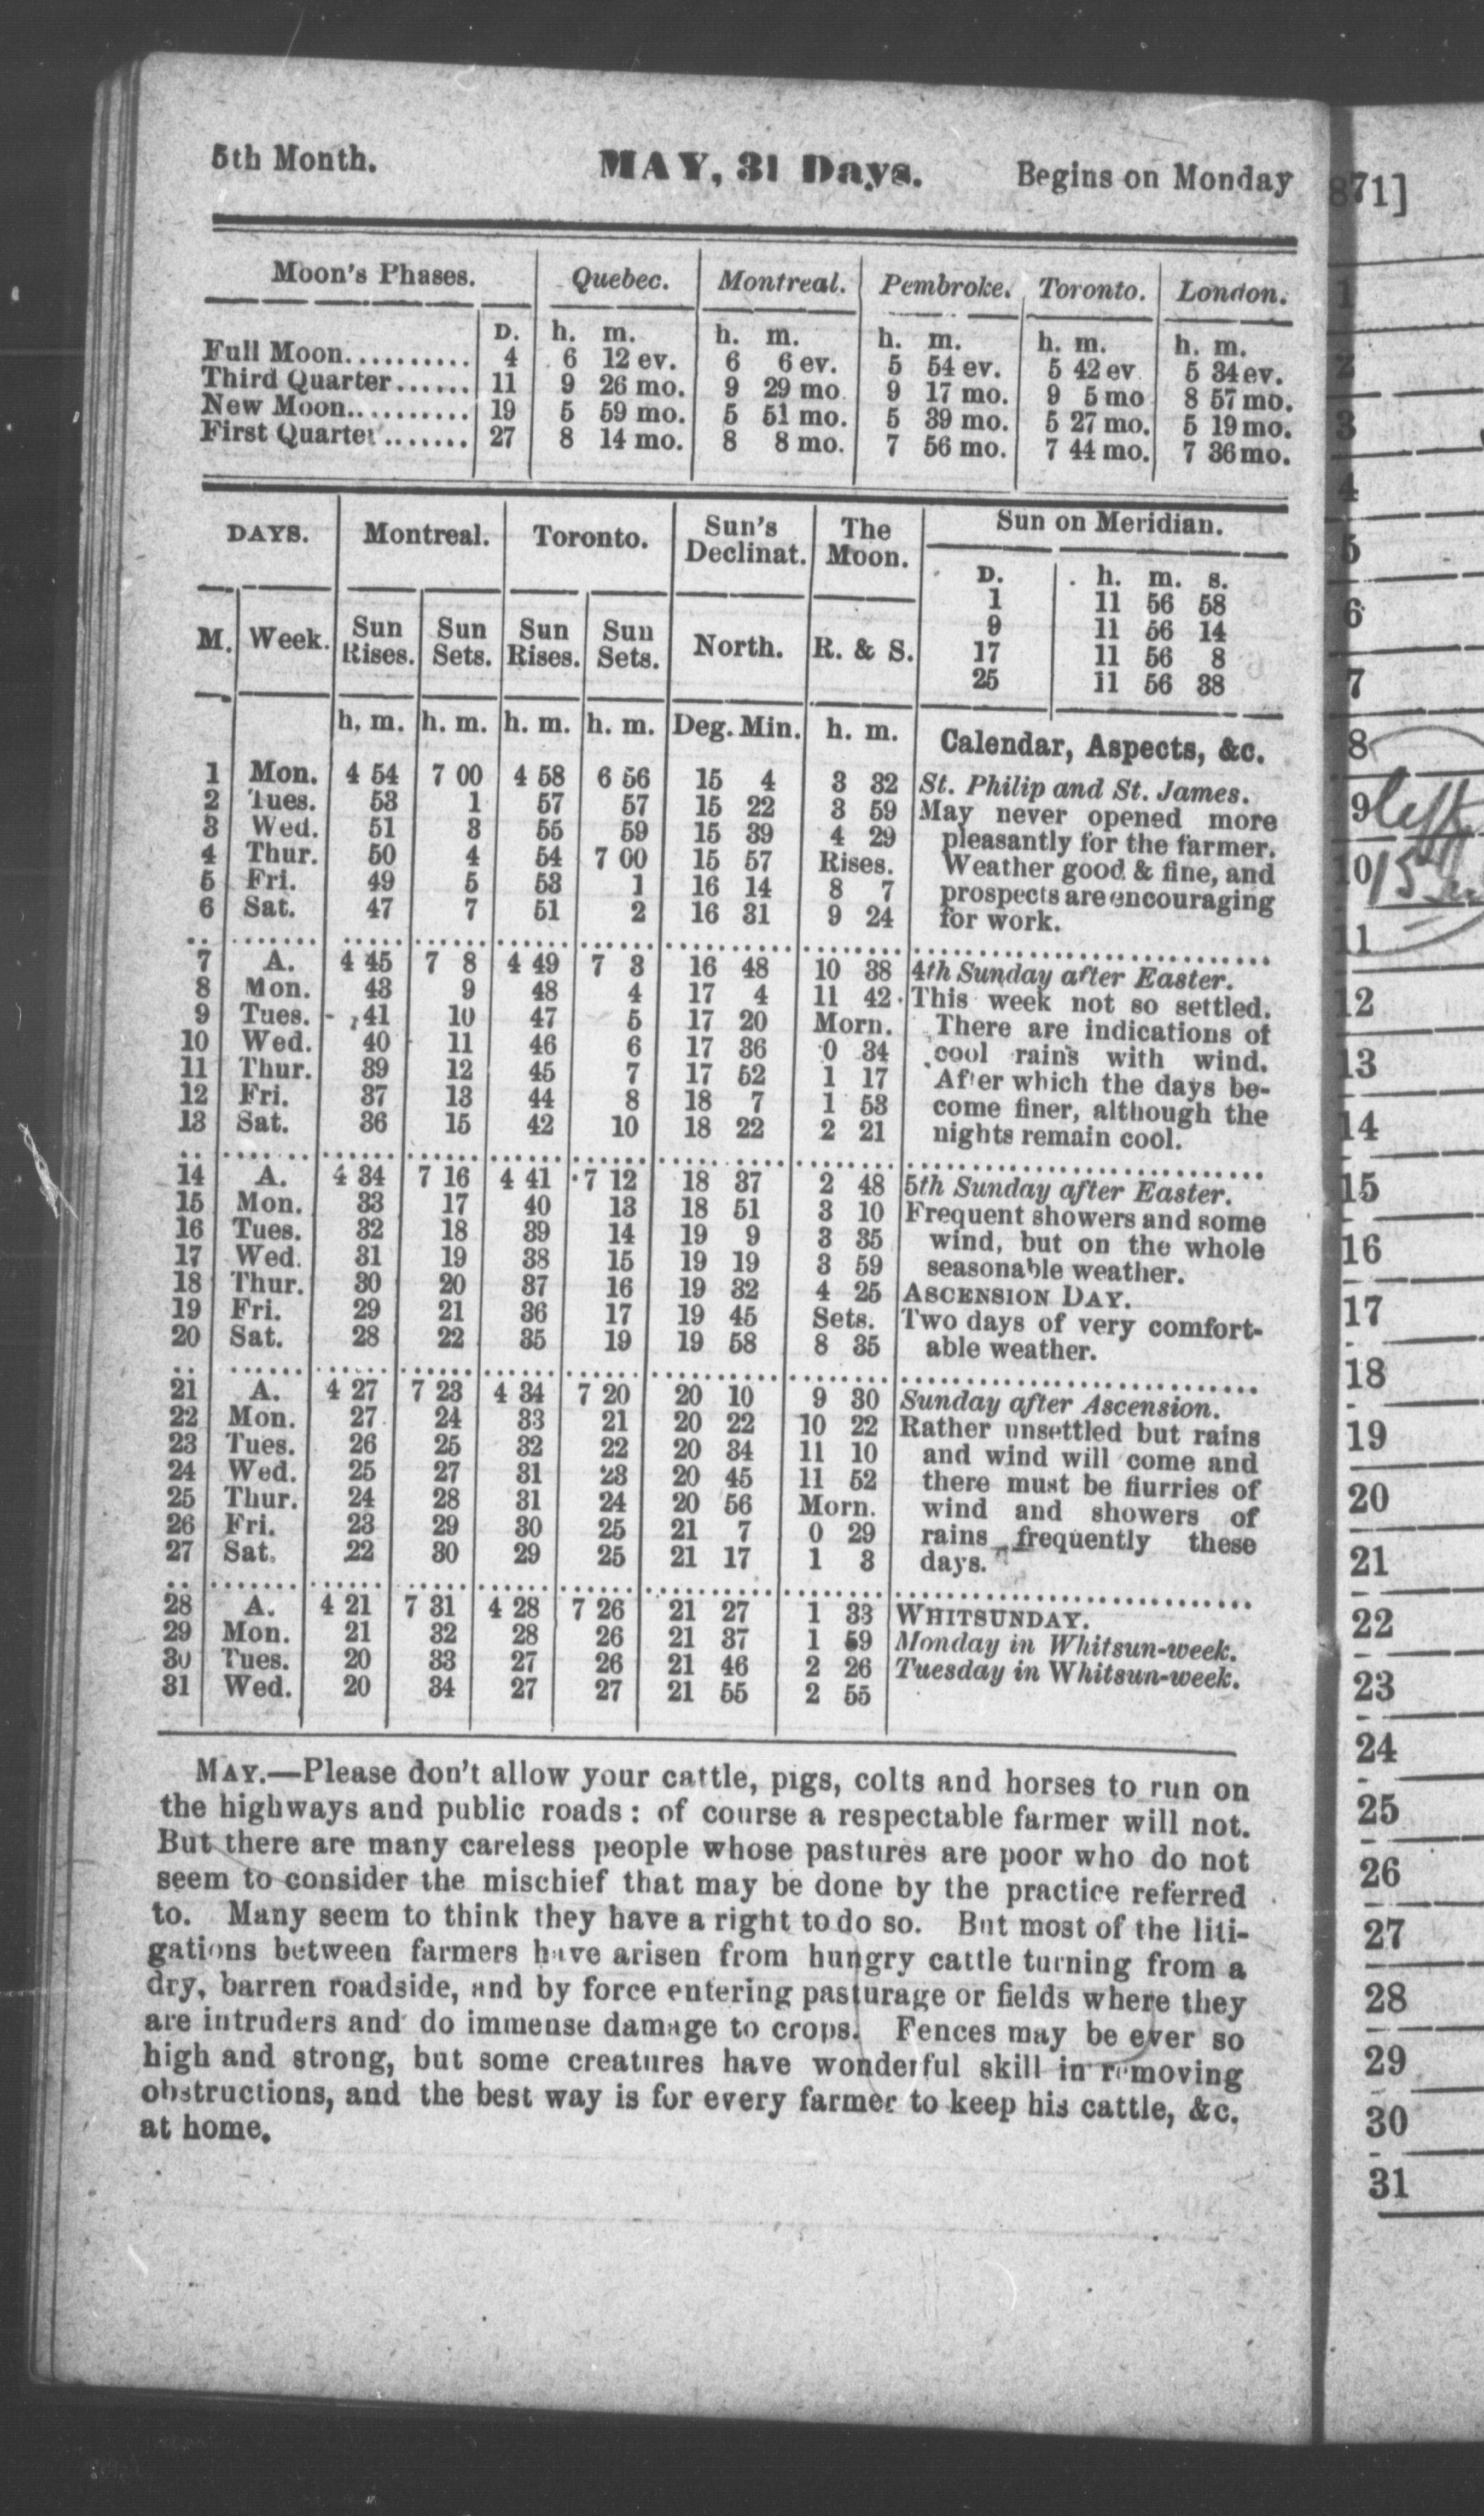 5th Month. MAY, 31 Days. Begins on Monday
Moon's Phases. Quebec. Montreal. Pembroke. Toronto. London.
D. h. m. h. m. h. m. h. m. h. m.
Full Moon.......... 4 6 12 ev. 6 6 ev. 5 54 ev. 5 42 ev 5 34 ev.
Third Quarter...... 11 9 26 mo. 9 29 mo 9 17 mo. 9 5 mo 8 57 mo.
New Moon.......... 19 5 59 mo. 5 51 mo. 5 39 mo. 5 27 mo. 5 19 mo.
First Quarter....... 27 8 14 mo. 8 8 mo. 7 56 mo. 7 44 mo. 7 36 mo.
DAYS. Montreal. Toronto. Sun's Declinat. The Moon. Sun on Meridian.
D. h. m. s.
1 11 56 58
9 11 56 14
17 11 56 8
25 11 56 38
M. Week. Sun Rises. Sun Sets. Sun Rises. Sun Sets. North. R. & S.
h. m. h. m. h. m. h. m. Deg. Min. h. m. Calendar, Aspects, &c.
1 Mon. 4 54 7 00 4 58 6 56 15 4 3 32 St. Philip and St. James.
2 Tues. 53 1 57 57 15 22 3 59 May never opened more
3 Wed. 51 3 55 59 15 39 4 29 pleasantly for the farmer.
4 Thur. 50 4 54 7 00 15 57 Rises. Weather good & fine, and
5 Fri. 49 5 53 1 16 14 8 7 prospects are encouraging
6 Sat. 47 7 51 2 16 31 9 24 for work.
7 A. 4 45 7 8 4 49 7 3 16 48 10 38 4th Sunday after Easter.
8 Mon. 43 9 48 4 17 4 11 42 This week not so settled.
9 Tues. 41 10 47 5 17 20 Morn. There are indications of
10 Wed. 40 11 46 6 17 36 0 34 cool rains with wind.
11 Thur. 39 12 45 7 17 52 1 17 After which the days be-
12 Fri. 37 13 44 8 18 7 1 53 come finer, although the
13 Sat. 36 15 42 10 18 22 2 21 nights remain cool.
14 A. 4 34 7 16 4 41 7 12 18 37 2 48 5th Sunday after Easter.
15 Mon. 33 17 40 13 18 51 3 10 Frequent showers and some
16 Tues. 32 18 39 14 19 9 3 35 wind, but on the whole
17 Wed. 31 19 38 15 19 19 3 59 seasonable weather.
18 Thur. 30 20 37 16 19 32 4 25 ASCENSION DAY.
19 Fri. 29 21 36 17 19 45 Sets. Two days of very comfort-
20 Sat. 28 22 35 19 19 58 8 35 able weather.
21 A. 4 27 7 23 4 34 7 20 20 10 9 30 Sunday after Ascension.
22 Mon. 27 24 33 21 20 22 10 22 Rather unsettled but rains
23 Tues. 26 25 32 22 20 34 11 10 and wind will come and
24 Wed. 25 27 31 23 20 45 11 52 there must be flurries of
25 Thur. 24 28 31 24 20 56 Morn. wind and showers of
26 Fri. 23 29 30 25 21 7 0 29 rains frequently these
27 Sat. 22 30 29 25 21 17 1 3 days.
28 A. 4 21 7 31 4 28 7 26 21 27 1 33 WHITSUNDAY.
29 Mon. 21 32 28 26 21 37 1 59 Monday in Whitsun-week.
30 Tues. 20 33 27 26 21 46 2 26 Tuesday in Whitsun-week.
31 Wed. 20 34 27 27 21 55 2 55
MAY.—Please don't allow your cattle, pigs, colts and horses to run on
the highways and public roads: of course a respectable farmer will not.
But there are many careless people whose pastures are poor who do not
seem to consider the mischief that may be done by the practice referred
to. Many seem to think they have a right to do so. But most of the liti-
gations between farmers have arisen from hungry cattle turning from a
dry, barren roadside, and by force entering pasturage or fields where they
are intruders and do immense damage to crops. Fences may be ever so
high and strong, but some creatures have wonderful skill in removing
obstructions, and the best way is for every farmer to keep his cattle, &c.
at home.
871]
1
2
3
4
5
6
7
8
9 left
10 15
11
12
13
14
15
16
17
18
19
20
21
22
23
24
25
26
27
28
29
30
31